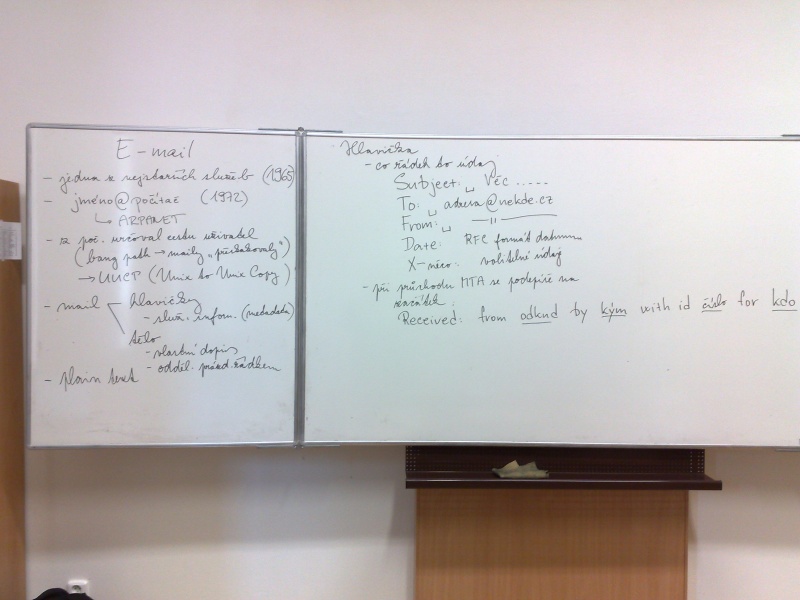 E-mail
- jedna z nejstarších služeb (1965)
- jméno@počítač (1972)
↳ ARPANET
- z poč. určoval cestu uživatel
(bang path → maily „přeskakovaly")
→ UUCP (Unix to Unix Copy)
- mail
hlavičky
- služ. inform. (metadata)
tělo
- vlastní dopis
- odděl. prázd. řádkem
- plain text
Hlavička
- co řádek to údaj
Subject:␣ Věc .....
To:␣ adresa@nekde.cz
From:␣ —"—
Date: RFC formát datumu
X-něco: volitelné údaje
- při průchodu MTA se podepíše na
začátek:
Received: from odkud by kým with id číslo for kdo